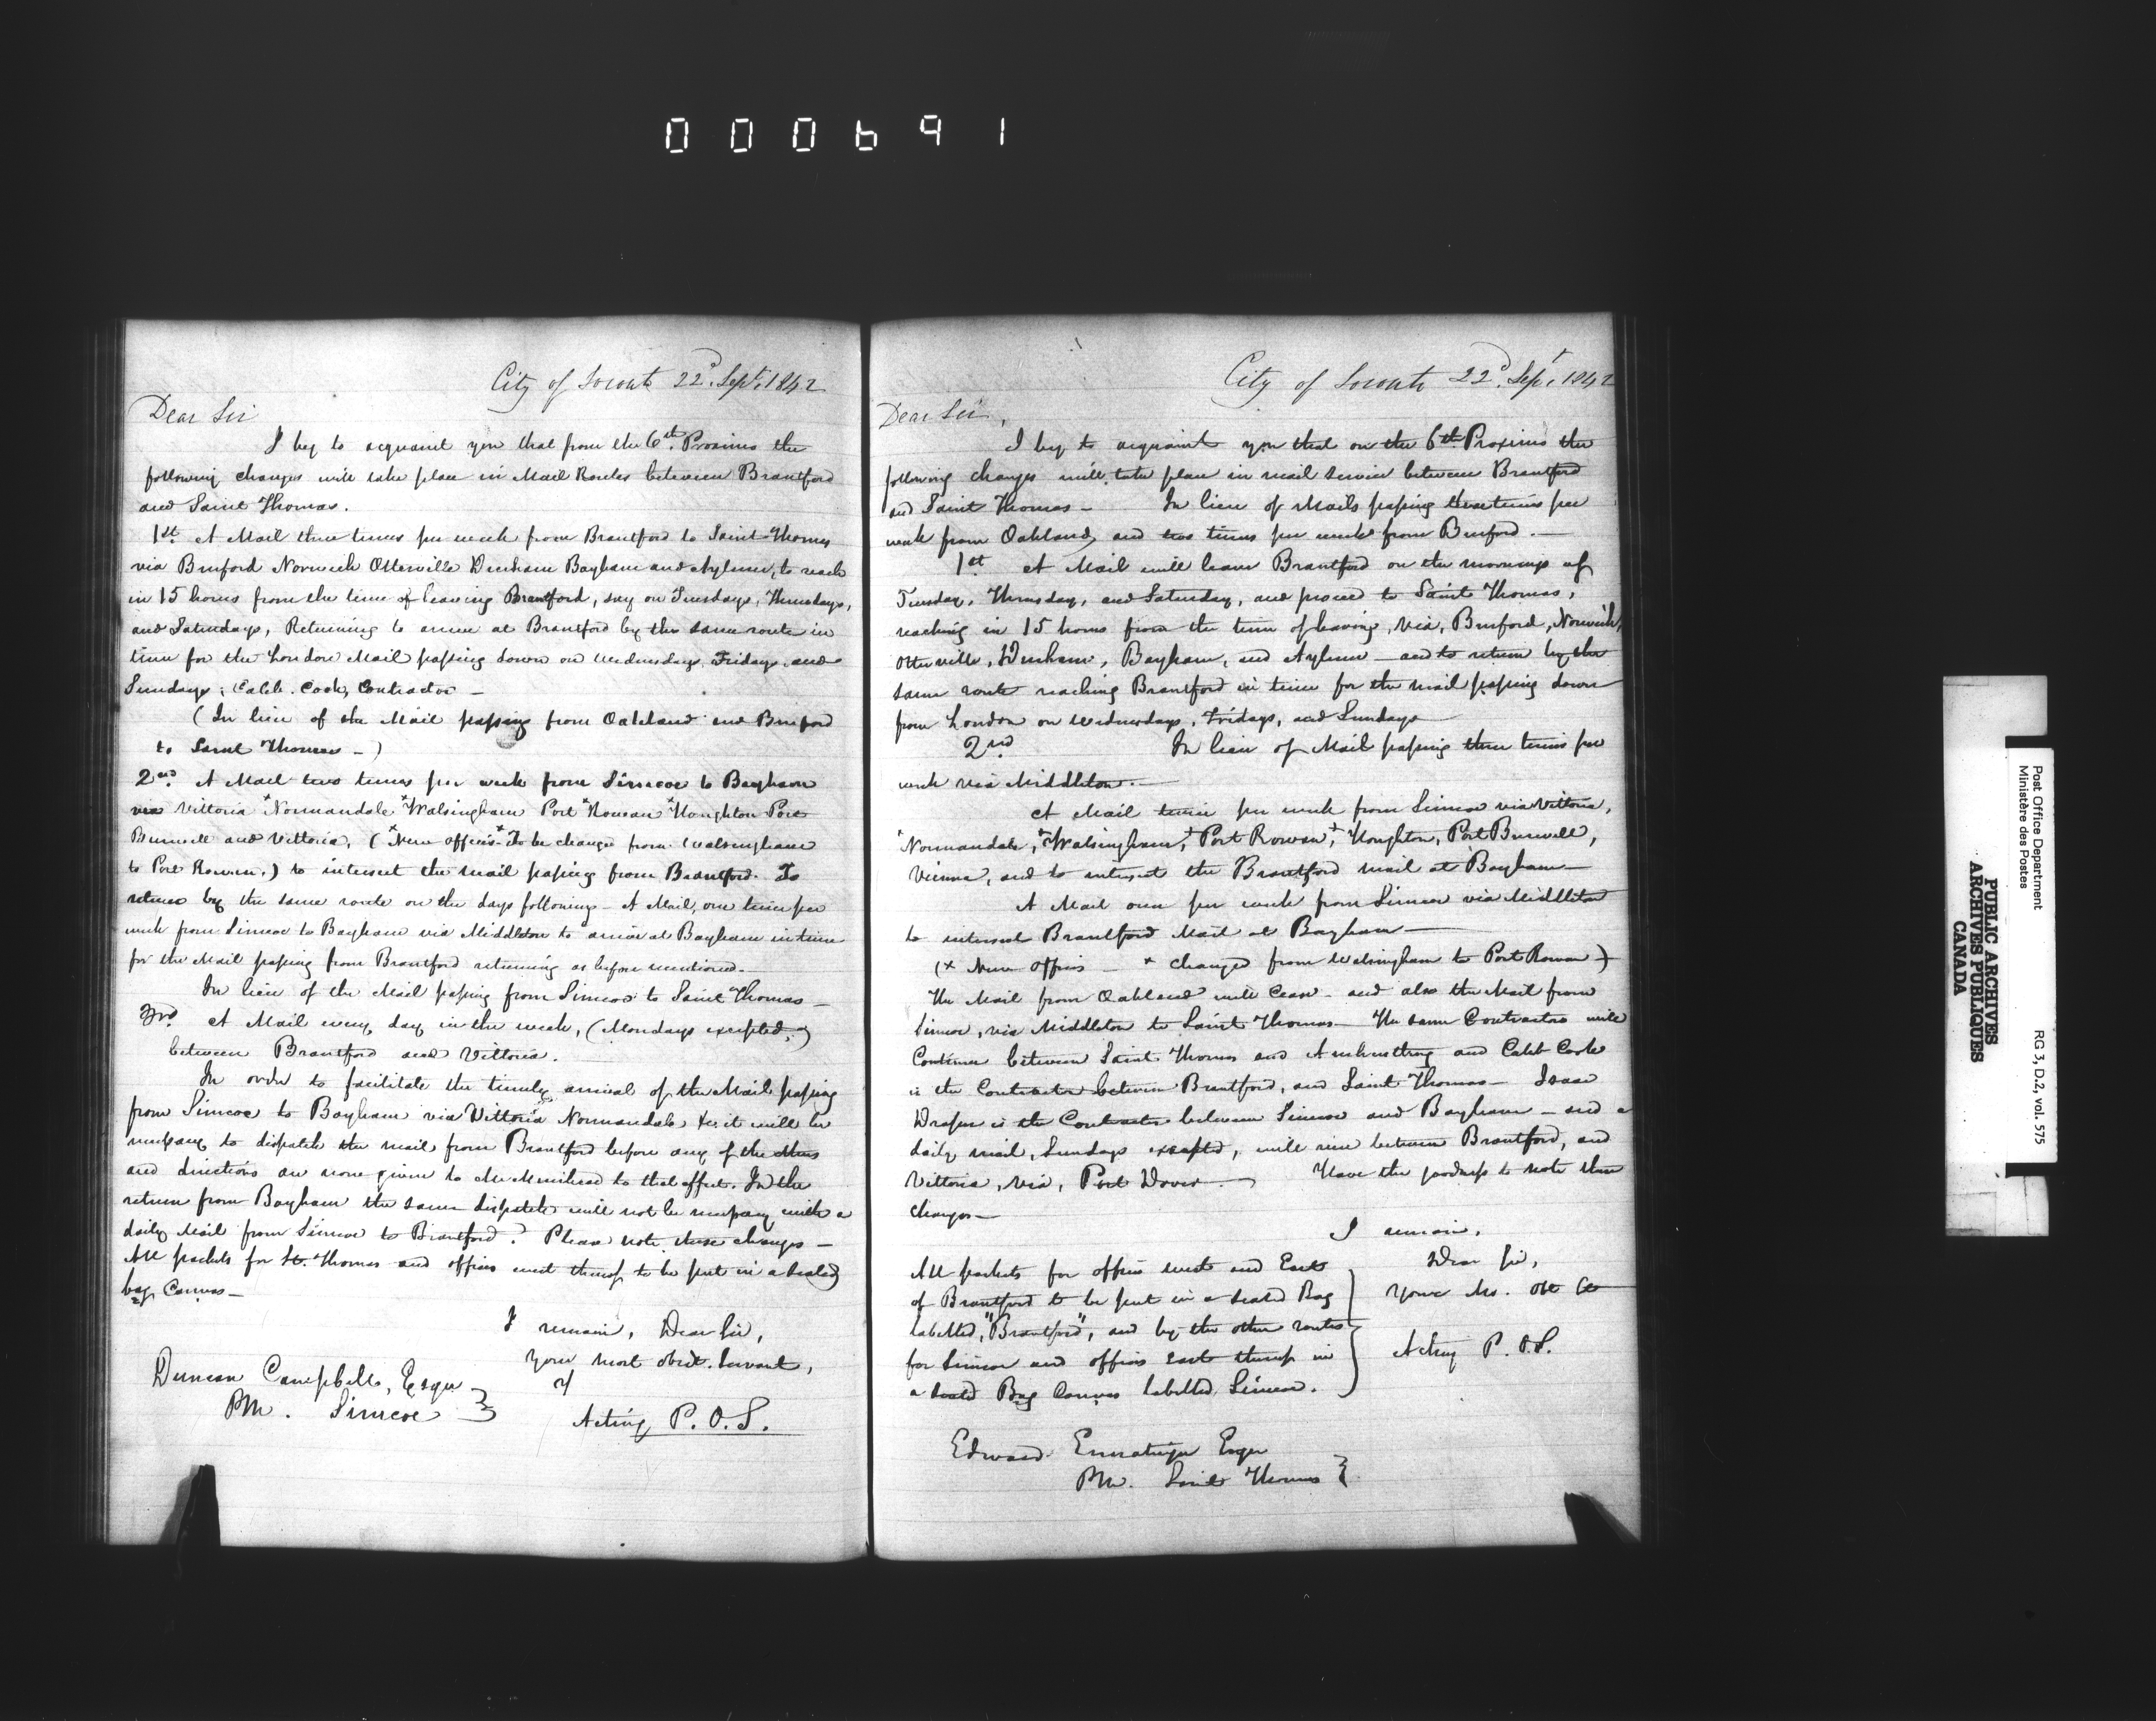 000691
City of Toronto 22d. Sept. 1842
Dear Sir
I beg to acquaint you that from the 6th. Proximo the
following changes will take place in Mail Routes between Brantford
and Saint Thomas.
1st. A Mail three times per week from Brantford to Saint Thomas
via Burford Norwich Otterville Dereham Bayham and Aylmer, to reach
in 15 hours from the time of leaving Brantford, say on Tuesdays, Thursdays,
and Saturdays, Returning to arrive at Brantford by the same route in
time for the London Mail passing down on Wednesdays, Fridays and
Sundays; Caleb. Cook, Contractor —
(In lieu of the Mail passing from Oakland and Burford
to Saint Thomas —)
2nd. A Mail two times per week from Simcoe to Bayham
via Vittoria *Normandale *Walsingham Port *Rowan *Houghton Port
Burwell and Vittoria, (*New offices *To be changed from Walsingham
to Port Rowan.) to intersect the mail passing from Brantford. To
return by the same route on the days following — A Mail, one time per
week from Simcoe to Bayham via Middleton to arrive at Bayham in time
for the Mail passing from Brantford returning as before mentioned. —
In lieu of the Mail passing from Simcoe to Saint Thomas —
3rd. A Mail every day in the week, (Mondays excepted,)
between Brantford and Vittoria.
In order to facilitate the timely arrival of the Mail passing
from Simcoe to Bayham via Vittoria Normandale &c it will be
necessary to dispatch the mail from Brantford before any of the others
and directions are now given to Mr Muirhead to that effect. In the
return from Bayham the same dispatch will not be necessary with a
daily Mail from Simcoe to Brantford. Please note these changes —
All packets for St. Thomas and offices west thereof to be put in a sealed
bag Canvas —
I remain, Dear Sir,
your most obedt. Servant,
Duncan Campbell, Esqre
PM. Simcoe
Acting P. O. S.
City of Toronto 22d. Sept. 1842
Dear Sir,
I beg to acquaint you that on the 6th Proximo the
following changes will take place in mail service between Brantford
and Saint Thomas — In lieu of Mails passing three times per
week from Oakland, and two times per week from Burford. —
1st A Mail will leave Brantford on the mornings of
Tuesday, Thursday, and Saturday, and proceed to Saint Thomas,
reaching in 15 hours from the time of leaving, via, Burford, Norwich,
Otterville, Dereham, Bayham, and Aylmer — and to return by the
same route reaching Brantford in time for the mail passing down
from London on Wednesdays, Fridays, and Sundays —
2nd In lieu of Mail passing three times per
week via Middleton. —
A Mail twice per week from Simcoe via Vittoria,
*Normandale, *Walsingham, *Port Rowan, *Houghton, Port Burwell,
Vienna, and to intersect the Brantford mail at Bayham —
A Mail once per week from Simcoe via Middleton
to intersect Brantford Mail at Bayham —
(* New offices — * changed from Walsingham to Port Rowan —)
The Mail from Oakland will cease — and also the Mail from
Simcoe, via Middleton to Saint Thomas — The same Contractors will
Continue between Saint Thomas and Amherstburg and Caleb Cook
is the Contractor between Brantford, and Saint Thomas — Isaac
Draper is the Contractor between Simcoe and Bayham — and a
daily mail, Sundays excepted, will run between Brantford, and
Vittoria, via, Port Dover. — Have the goodness to note these
changes —
I remain,
Dear Sir,
Your Mo. Obt
Acting P. O. S.
All packets for offices west and East
of Brantford to be put in a sealed Bag
labelled, "Brantford", and by the other routes
for Simcoe and offices East thereof in
a sealed Bag Canvas labelled, Simcoe.
Edward Ermatinger Esqre
PM. Saint Thomas
Post Office Department
Ministère des Postes
RG 3, D.2, vol. 575
PUBLIC ARCHIVES
ARCHIVES PUBLIQUES
CANADA